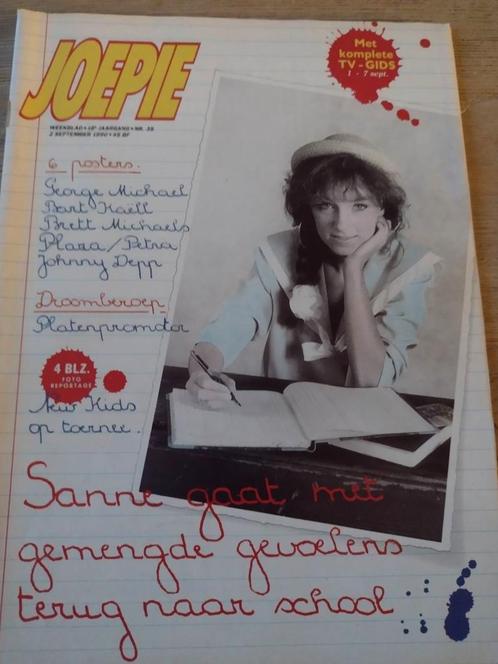 JOEPIE
WEEKBLAD • 18e JAARGANG • NR. 36
2 SEPTEMBER 1990 • 45 BF
Met
komplete
TV-GIDS
1 - 7 sept.
6 posters:
George Michael
Bart Kaëll
Brett Michaels
Plaza/Petra
Johnny Depp
Droomberoep
Platenpromotor
4 BLZ.
FOTO
REPORTAGE
New Kids
op toernee.
Sanne gaat met
gemengde gevoelens
terug naar school